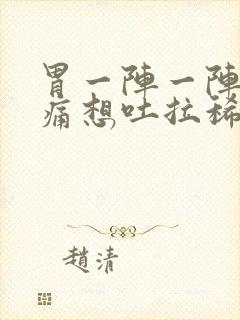 胃一陣一陣
痛想吐拉稀
趙清